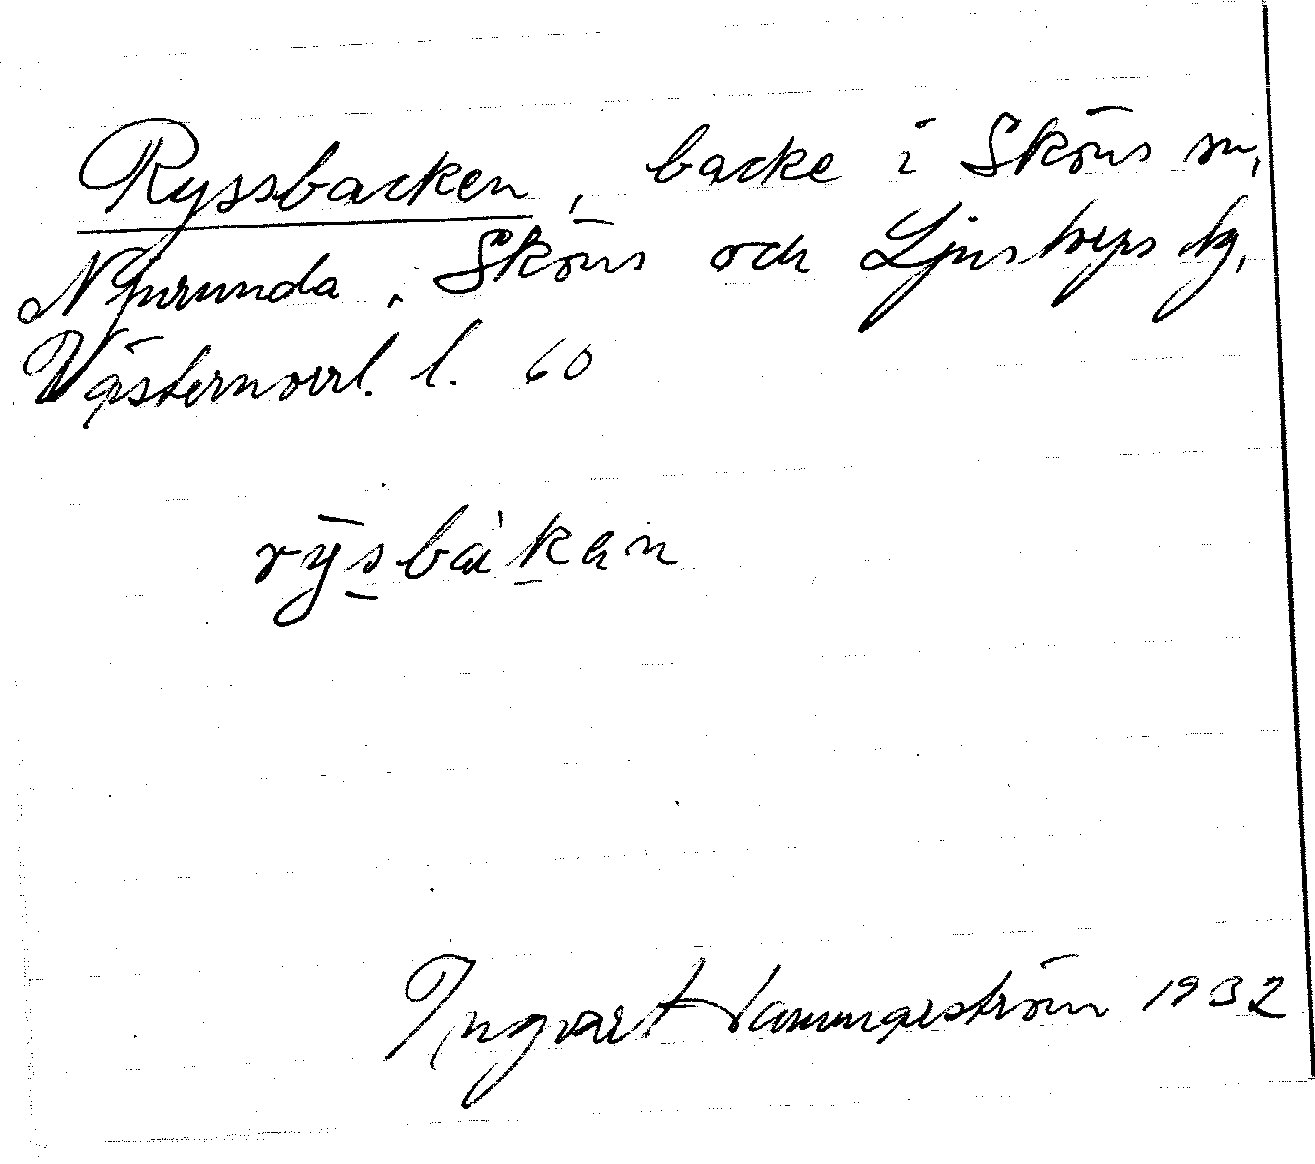 Ryssbacken, backe i Sköns sn,
Njurunda, Sköns och Ljustorps tg,
Västernorrl. l. 60
rȳsbàkan
Ingvart Hammarström 1932